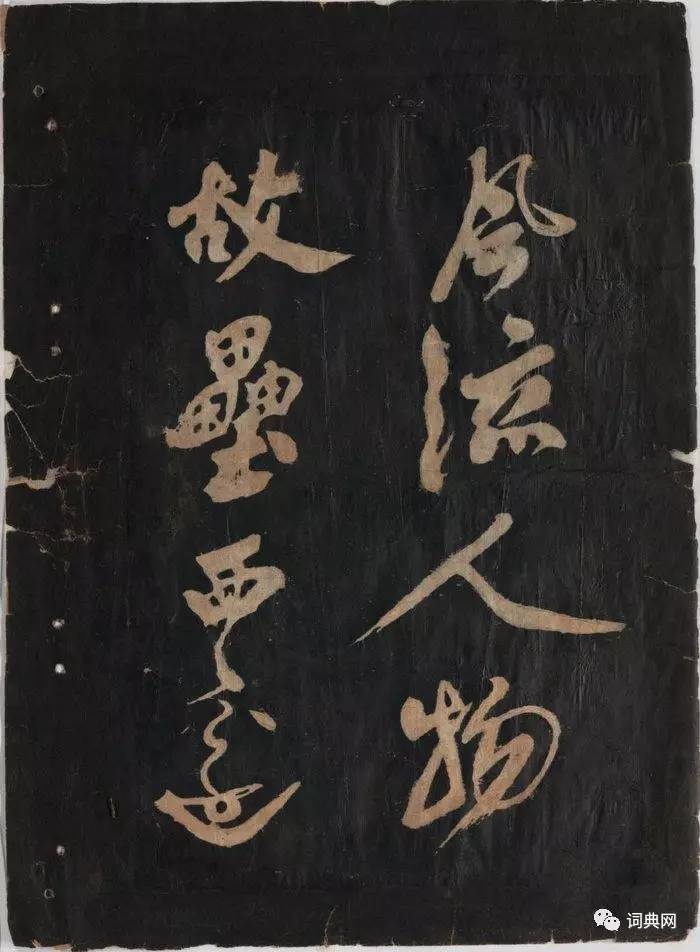 風流人物
故壘西邊
词典网